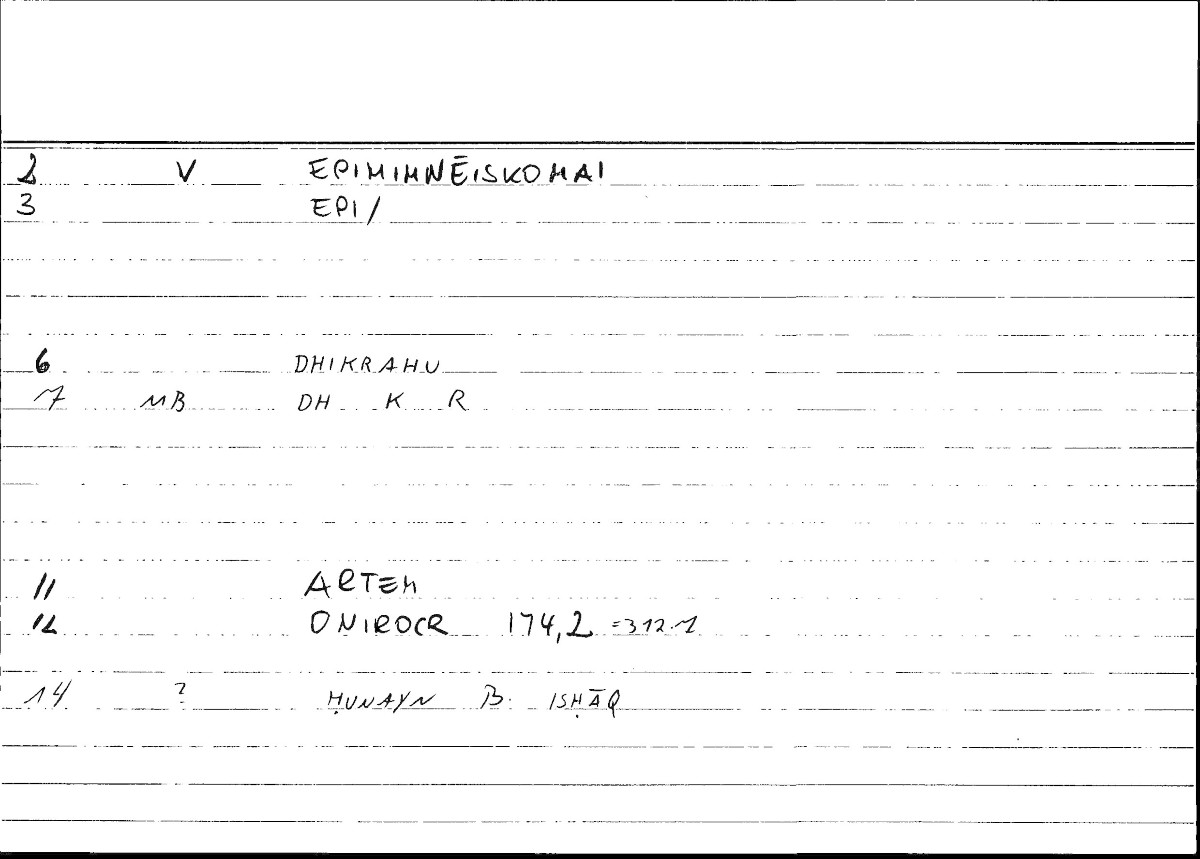 2 V EPIMIMNĒISKOMAI
3 EPI/
6 DHIKRAHU
7 MB DH K R
11 ARTEM
12 ONIROCR 174,2 =312.1
14 ? ḤUNAYN B. ISḤĀQ